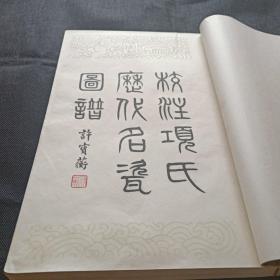 校注項氏
歷代名瓷
圖譜
許寶蘅